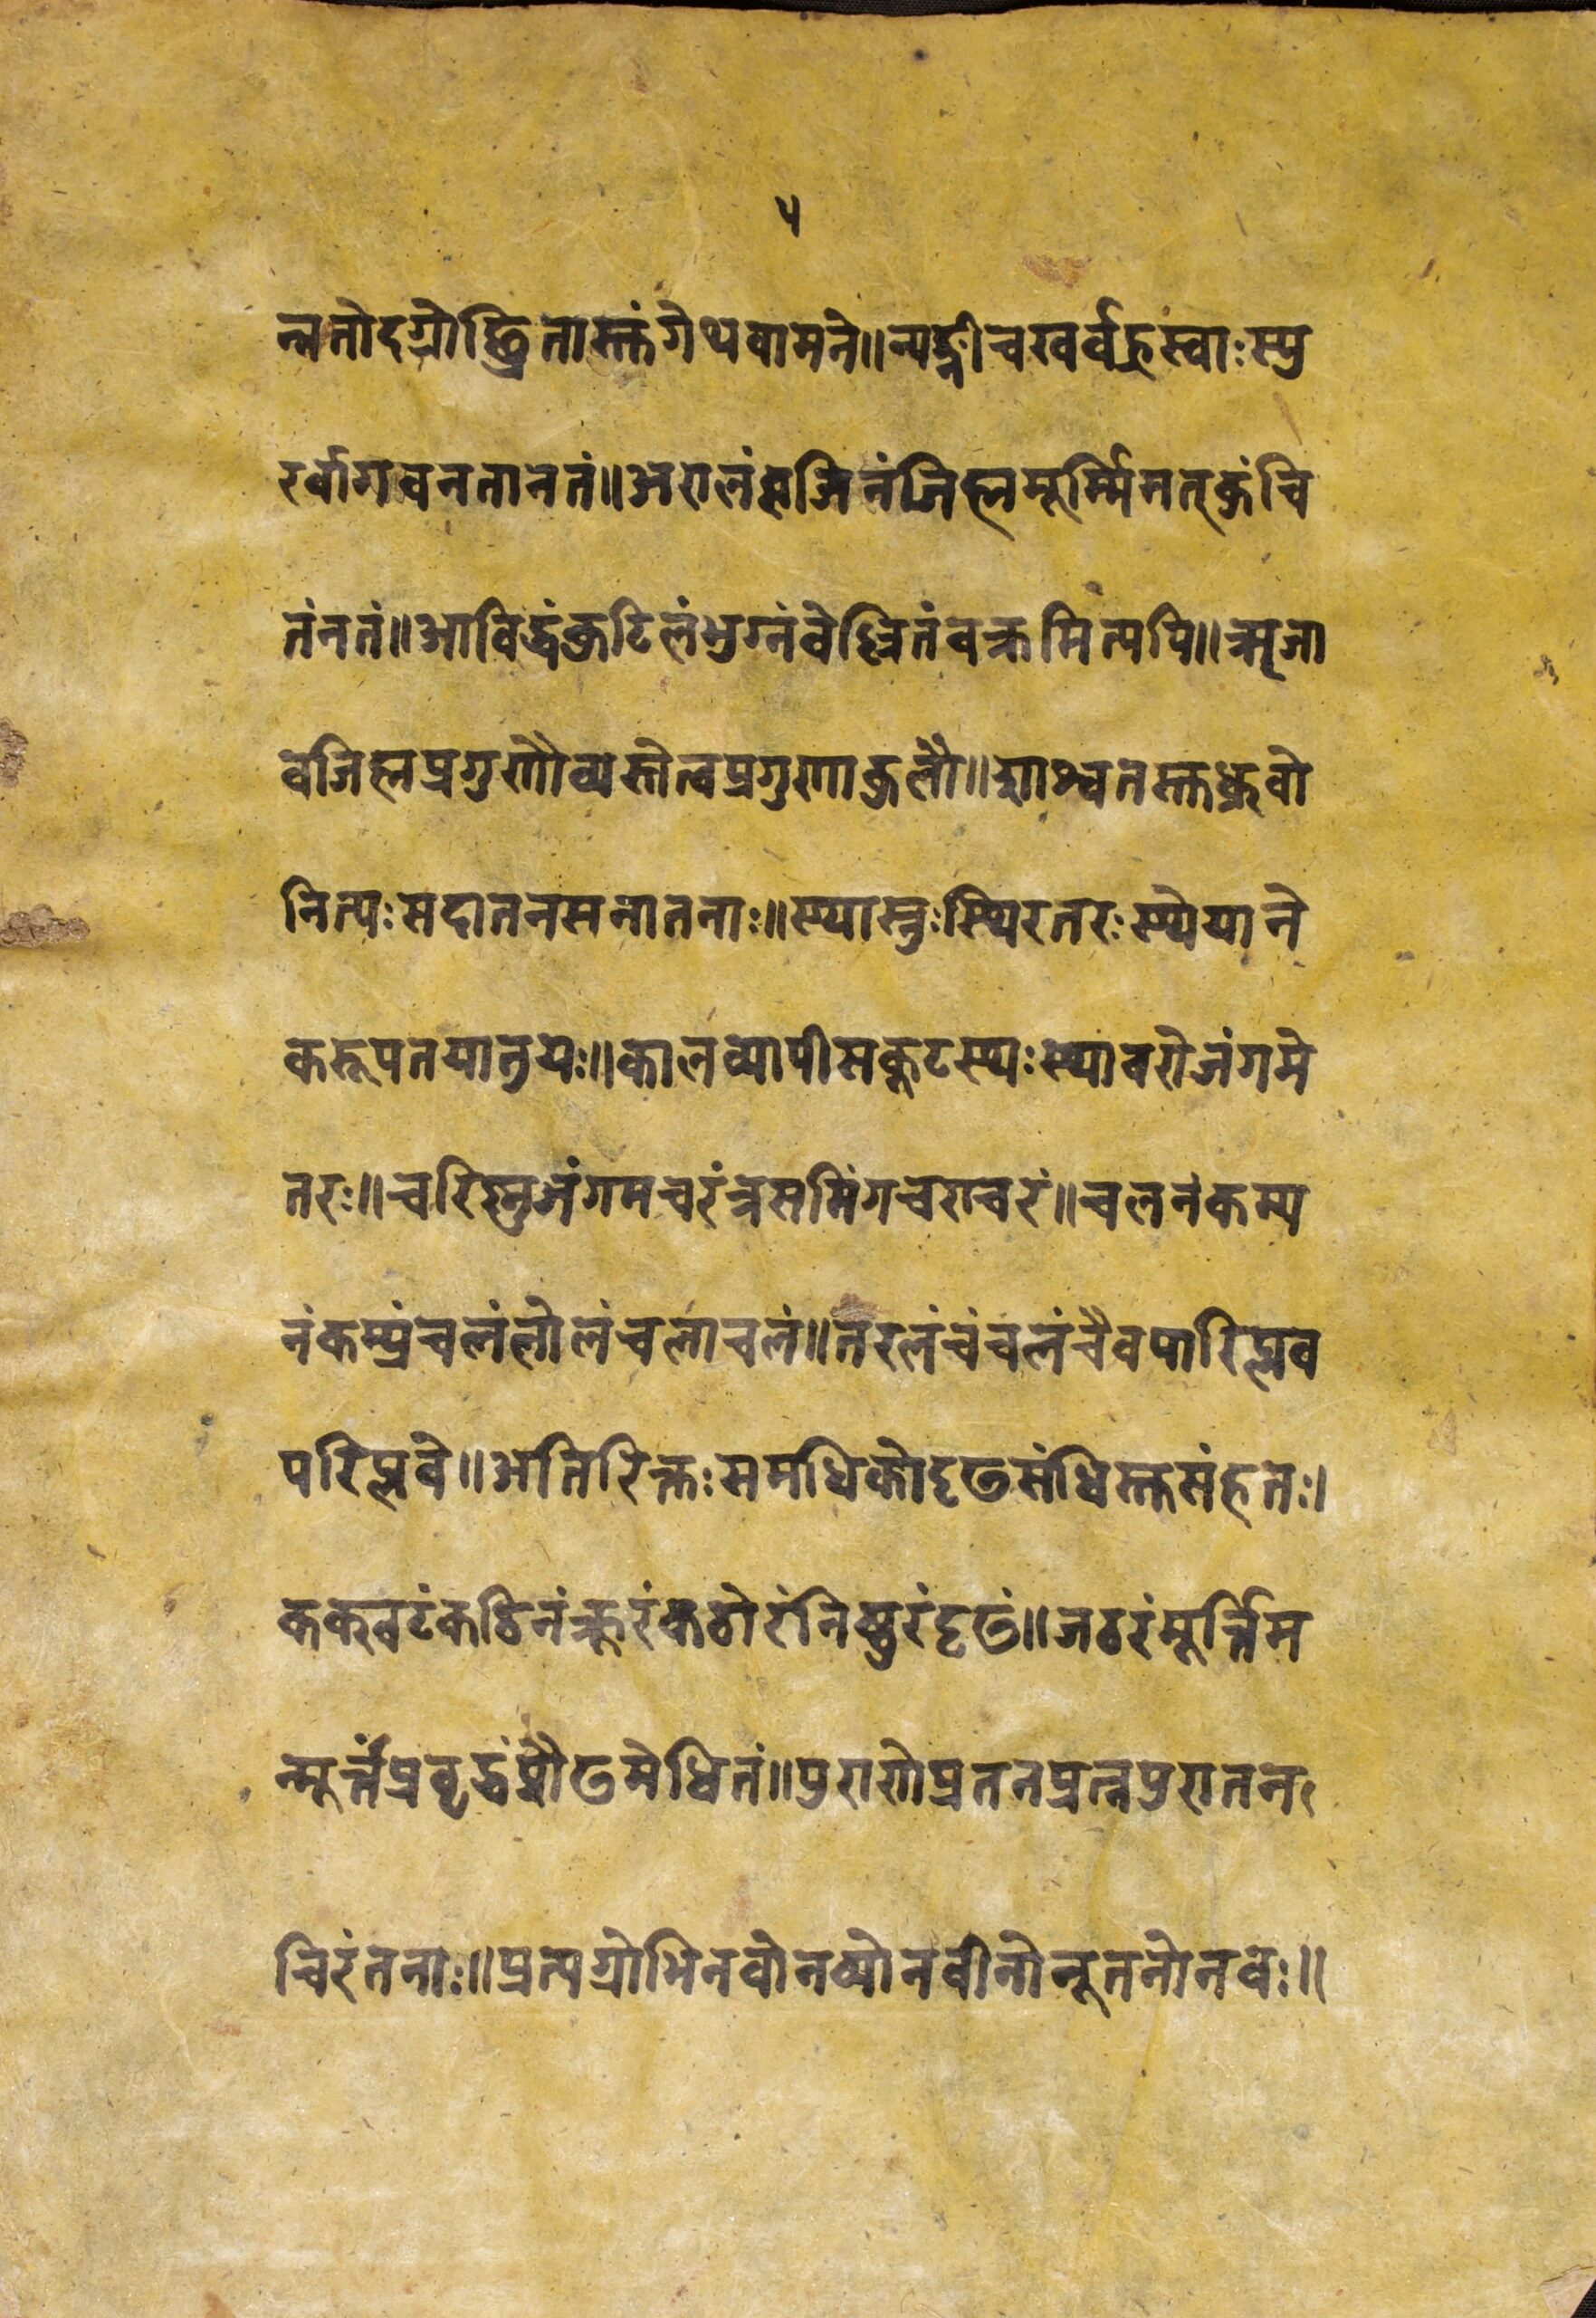 ५
न्नतोदग्रोछ्रितास्तुंगेथवामने॥न्यङ्नीचखर्वह्रस्वाःस्यु
रर्वागवनतानतं॥अरालंवृजिनंजिह्ममूर्म्मिमत्कुंचि
तंनतं॥आविद्धंकुटिलंभुग्नंवेल्लितंवक्रमित्यपि॥ऋजा
वजिह्मप्रगुणौव्यस्तेत्वप्रगुणाकुलौ॥शाश्वतस्तुध्रुवो
नित्यःसदातनसनातनाः॥स्थास्नुःस्थिरतरःस्थेयाने
करूपतयातुयः॥कालव्यापीसकूटस्थःस्थावरोजंगमे
तरः॥चरिष्नुजंगमचरंत्रसमिंगचराचरं॥चलनंकम्प
नंकम्प्रंचलंलोलंचलाचलं॥तरलंचंचलंचैवपारिप्लव
परिप्लवे॥अतिरिक्तःसमधिकोदृढसंधिस्तुसंहतः।
कक्खटंकठिनंक्रूरंकठोरंनिष्ठुरंदृढं॥जठरंमूर्त्तिम
न्मूर्त्तंप्रवृद्धंप्रौढमेधितं॥पुराणोप्रतनप्रत्नपुरातन
चिरंतनाः॥प्रत्यग्रोभिनवोनव्योनवीनोनूतनोनवः॥